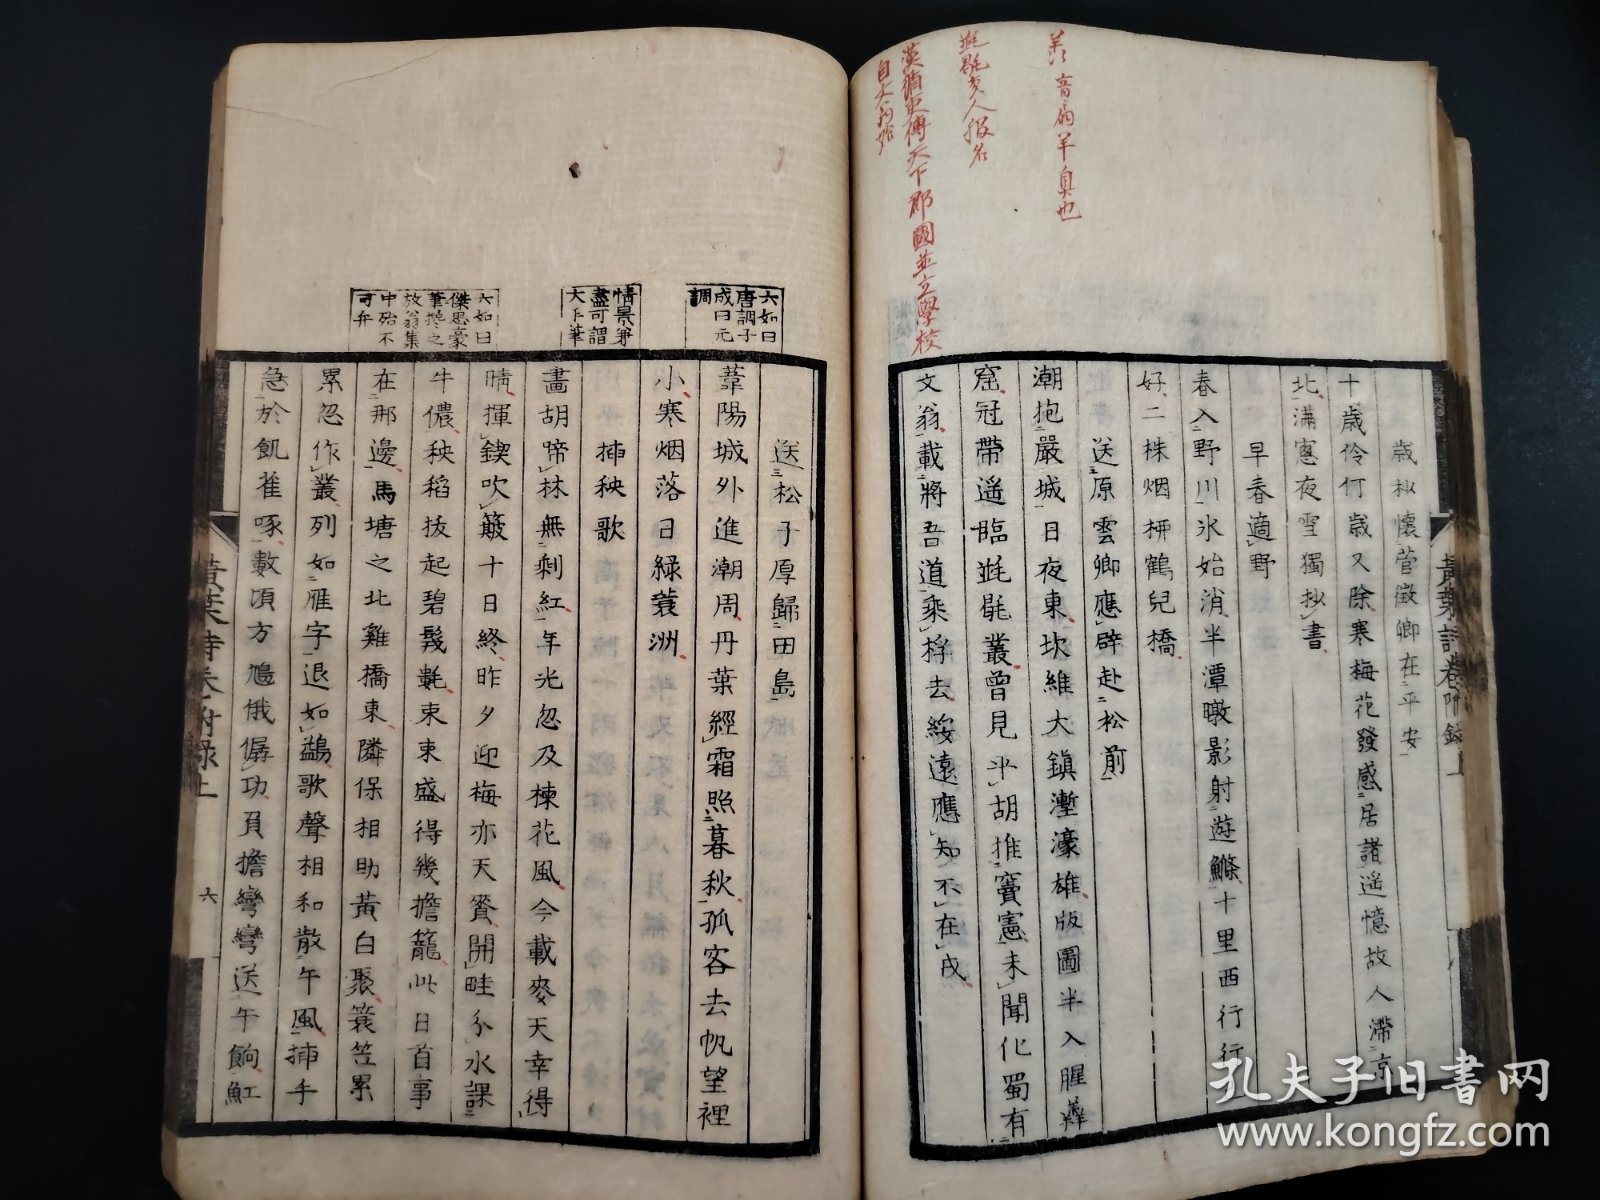 羶音扇羊臭也
漢循吏傳天下郡國並立學校
歲抄懷菅徵卿在平安
十歲伶仃歲又除寒梅花發感居諸遥憶故人滯京
北滿窓夜雪獨抄書
早春適野
春入野川氷始消半潭暾影射遊鰷十里西行行
好二株烟栁鶴兒橋
送原雲卿應辟赴松前
潮抱嚴城日夜東坎維大鎮塹濠雄版圖半入腥羶
窟冠帶遥臨毡毾叢曾見平胡推竇憲未聞化蜀有
文翁載將吾道乘桴去綏遠應知不在戎
黃葉詩卷附錄上
六如曰
唐調子
成曰元
調
情景兼
盡可謂
大手筆
六如曰
傑思豪
筆擔之
放翁集
中殆不
可弁
送松子厚歸田島
葦陽城外進潮周丹葉經霜照暮秋孤客去帆望裡
小寒烟落日緑蓑洲
挿秧歌
畵胡啼林無剩紅年光忽及楝花風今載麥天幸得
晴揮鍥吹簸十日終昨夕迎梅亦天賚開畦分水課
牛儂秧稻抜起碧鬖毿束束盛得幾擔籠此日首事
在那邊馬塘之北雞橋東隣保相助黃白聚簑笠累
累忽作叢列如雁字退如鷁歌聲相和散午風挿手
急於飢雀啄數頃方鳩俄僝功負擔彎彎送午餉魟
黃葉詩卷附錄上
六
孔夫子旧书网
www.kongfz.com